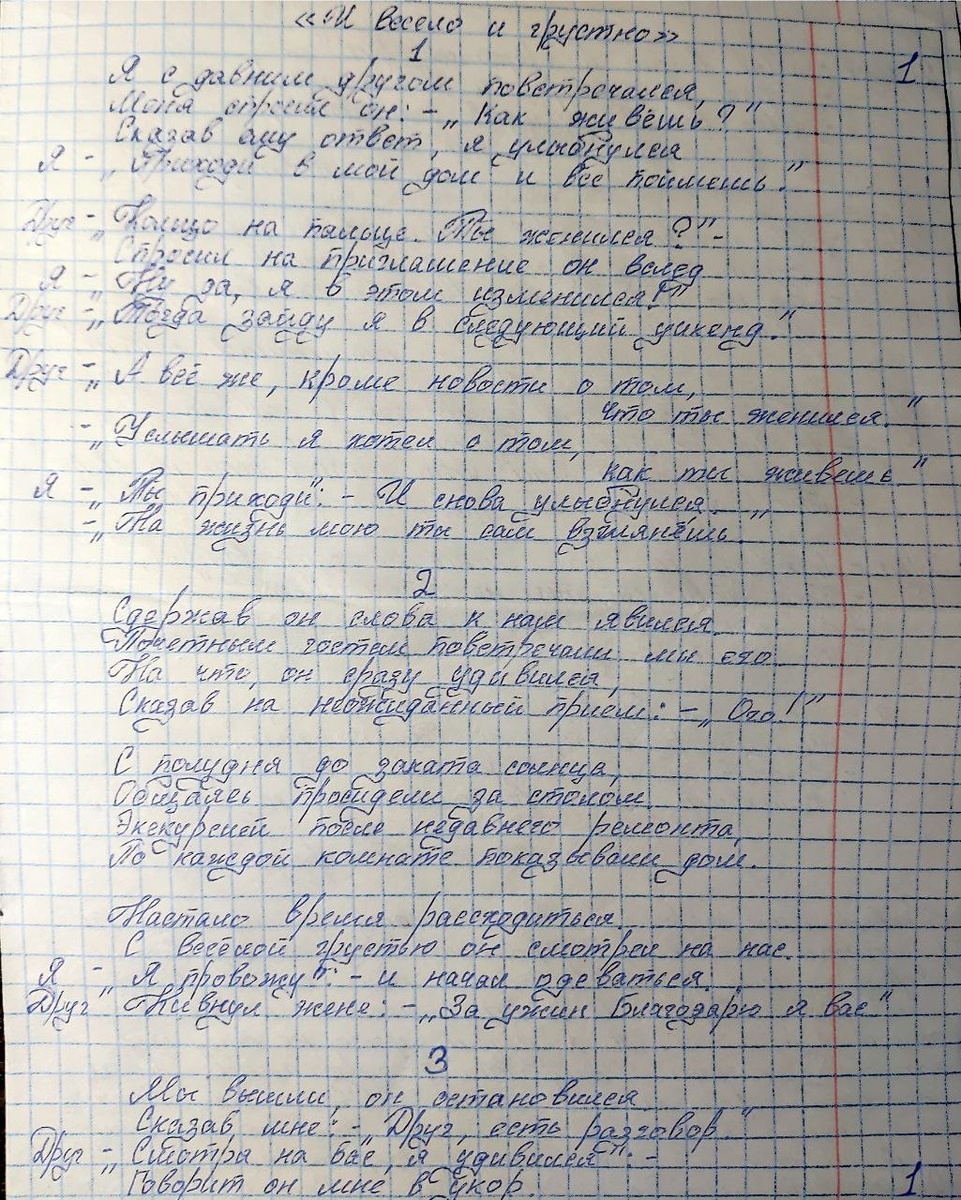 «И весело и грустно»
1
1
Я с давним другом повстречался,
Меня спросил он: – „Как живёшь?"
Сказав ему ответ, я улыбнулся
Я – „Приходи в мой дом и все поймешь."
Друг – „Кольцо на пальце. Ты женился?" –
Спросил на приглашение он вслед
Я – „Ну да, я в этом изменился!"
Друг – „Тогда зайду я в следующий уикенд."
Друг – „А всё же, кроме новости о том,
что ты женился."
– „Услышать я хотел о том,
как ты живешь"
Я – „Ты приходи": – И снова улыбнулся.
– „На жизнь мою ты сам взглянёшь"
2
Сдержав он слова к нам явился.
Почетным гостем повстречали мы его
На что, он сразу удивился,
Сказав на неожиданный прием: – „Ого!"
С полудня до заката солнца,
Общаясь просидели за столом.
Экскурсией после недавнего ремонта,
По каждой комнате показывали дом.
Настало время расходиться.
С весёлой грустью он смотрел на нас.
Я – „Я провожу": – и начал одеваться.
Друг „Кивнул жене: – „За ужин благодарю я вас"
3
Мы вышли, он остановился
Сказав мне: – „Друг, есть разговор"
Друг – „Смотря на вас, я удивился": –
Говорит он мне в укор.
1